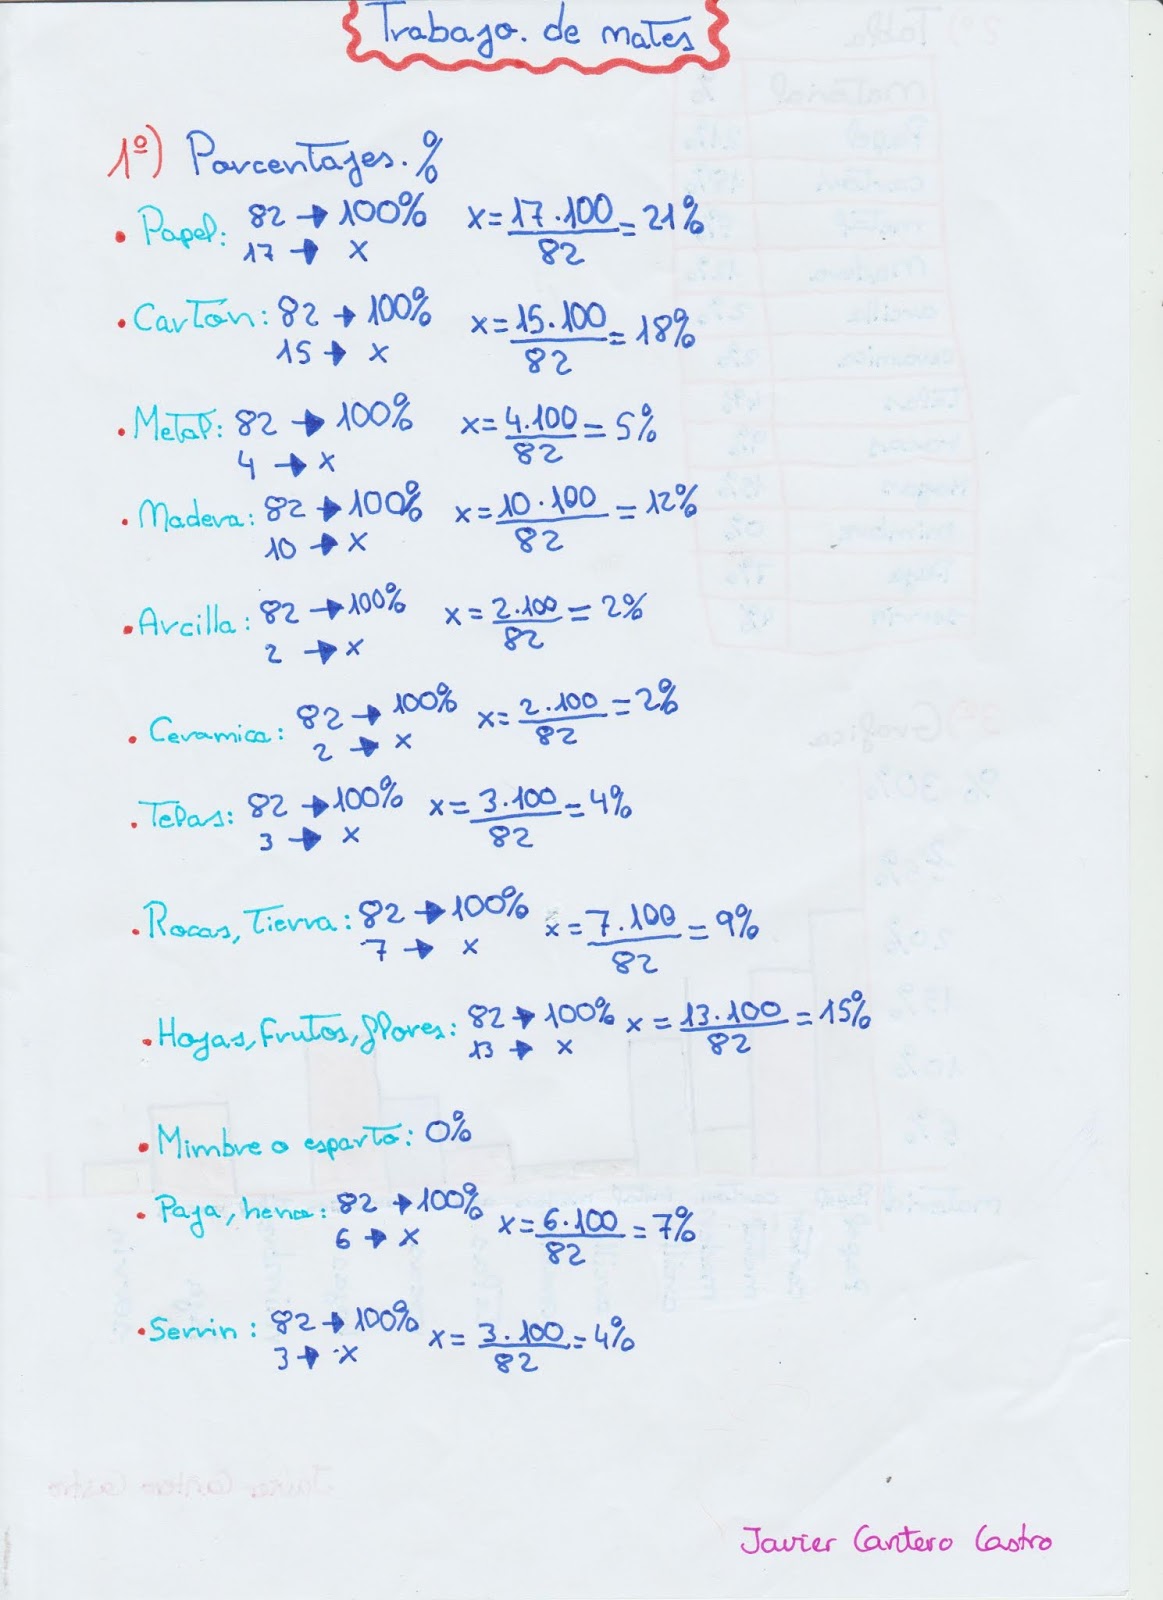 Trabajo. de mates
1º) Porcentajes. %
• Papel: 82 → 100% x = 17 · 100 / 82 = 21%
17 → x
• Cartón: 82 → 100% x = 15 · 100 / 82 = 18%
15 → x
• Metal: 82 → 100% x = 4 · 100 / 82 = 5%
4 → x
• Madera: 82 → 100% x = 10 · 100 / 82 = 12%
10 → x
• Arcilla: 82 → 100% x = 2 · 100 / 82 = 2%
2 → x
• Ceramica: 82 → 100% x = 2 · 100 / 82 = 2%
2 → x
• Telas: 82 → 100% x = 3 · 100 / 82 = 4%
3 → x
• Rocas, Tierra: 82 → 100% x = 7 · 100 / 82 = 9%
7 → x
• Hojas, frutos, flores: 82 → 100% x = 13 · 100 / 82 = 15%
13 → x
• Mimbre o esparto: 0%
• Paja, heno: 82 → 100% x = 6 · 100 / 82 = 7%
6 → x
• Serrin: 82 → 100% x = 3 · 100 / 82 = 4%
3 → x
Javier Cantero Castro